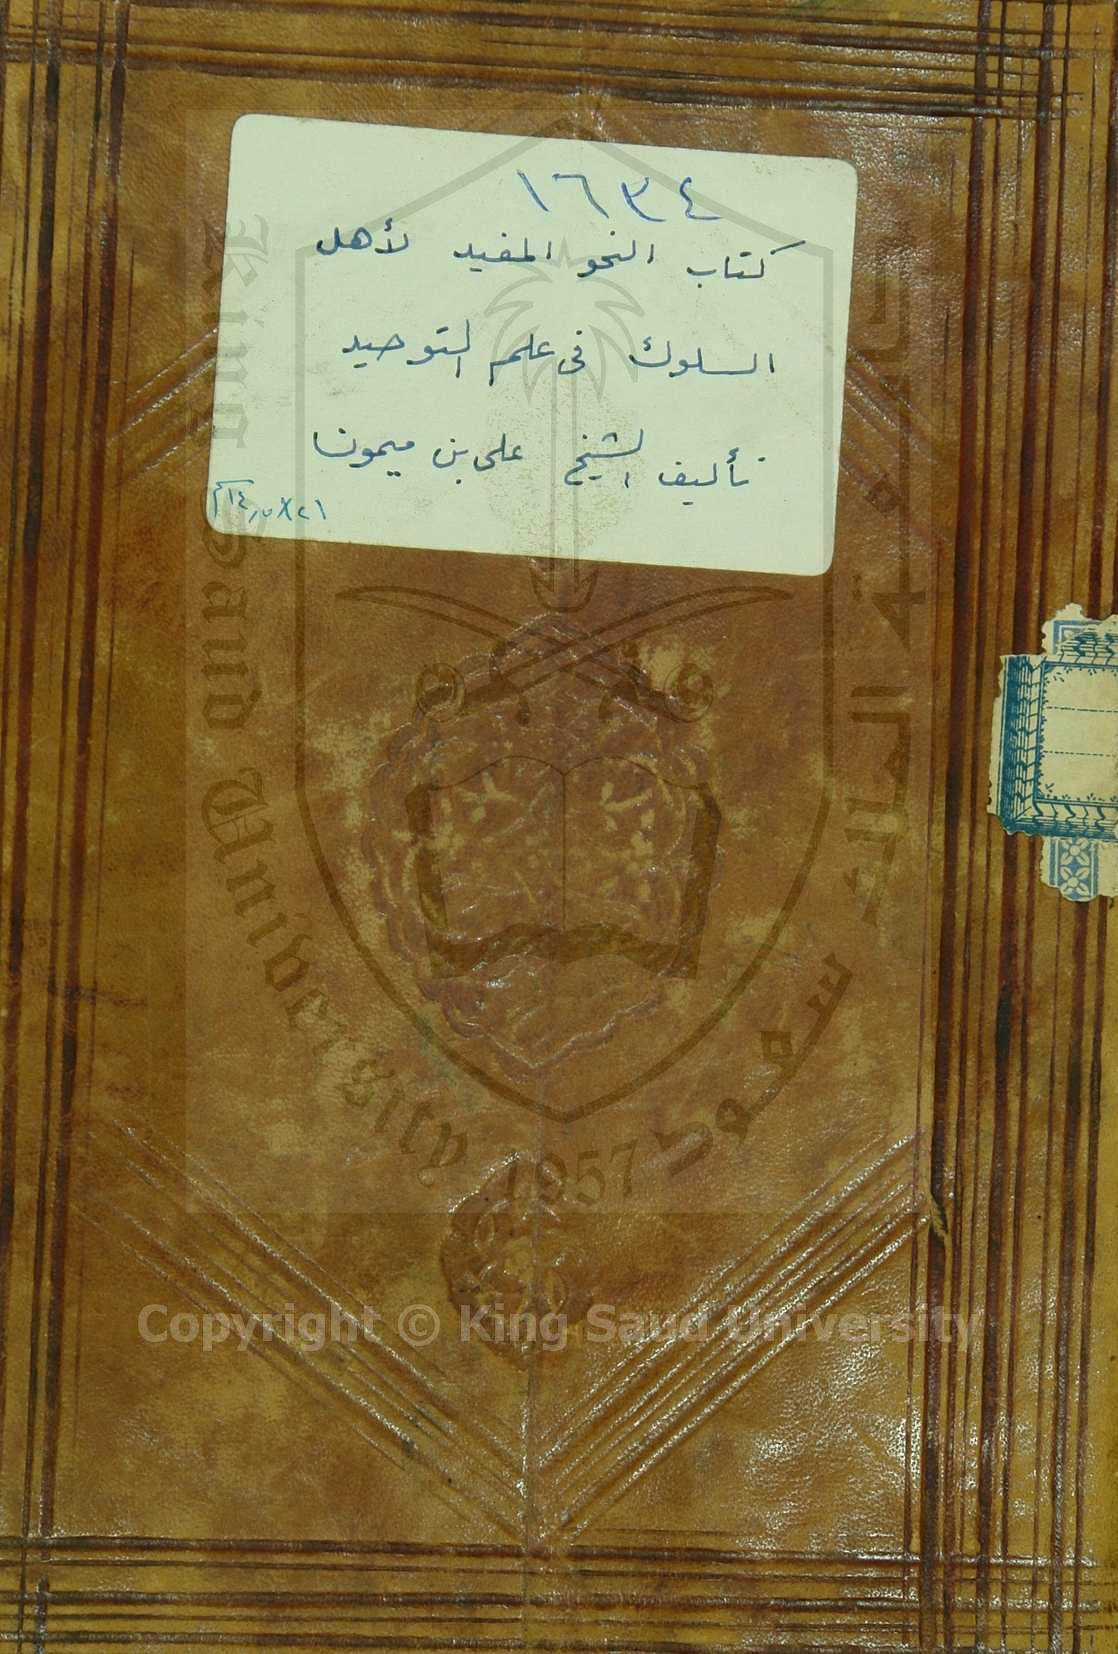 ١٦٣٤
كتاب النحو المفيد لأهل
السلوك فى علم التوحيد
تأليف الشيخ على بن ميمون
King Saud University
1957
Copyright © King Saud University